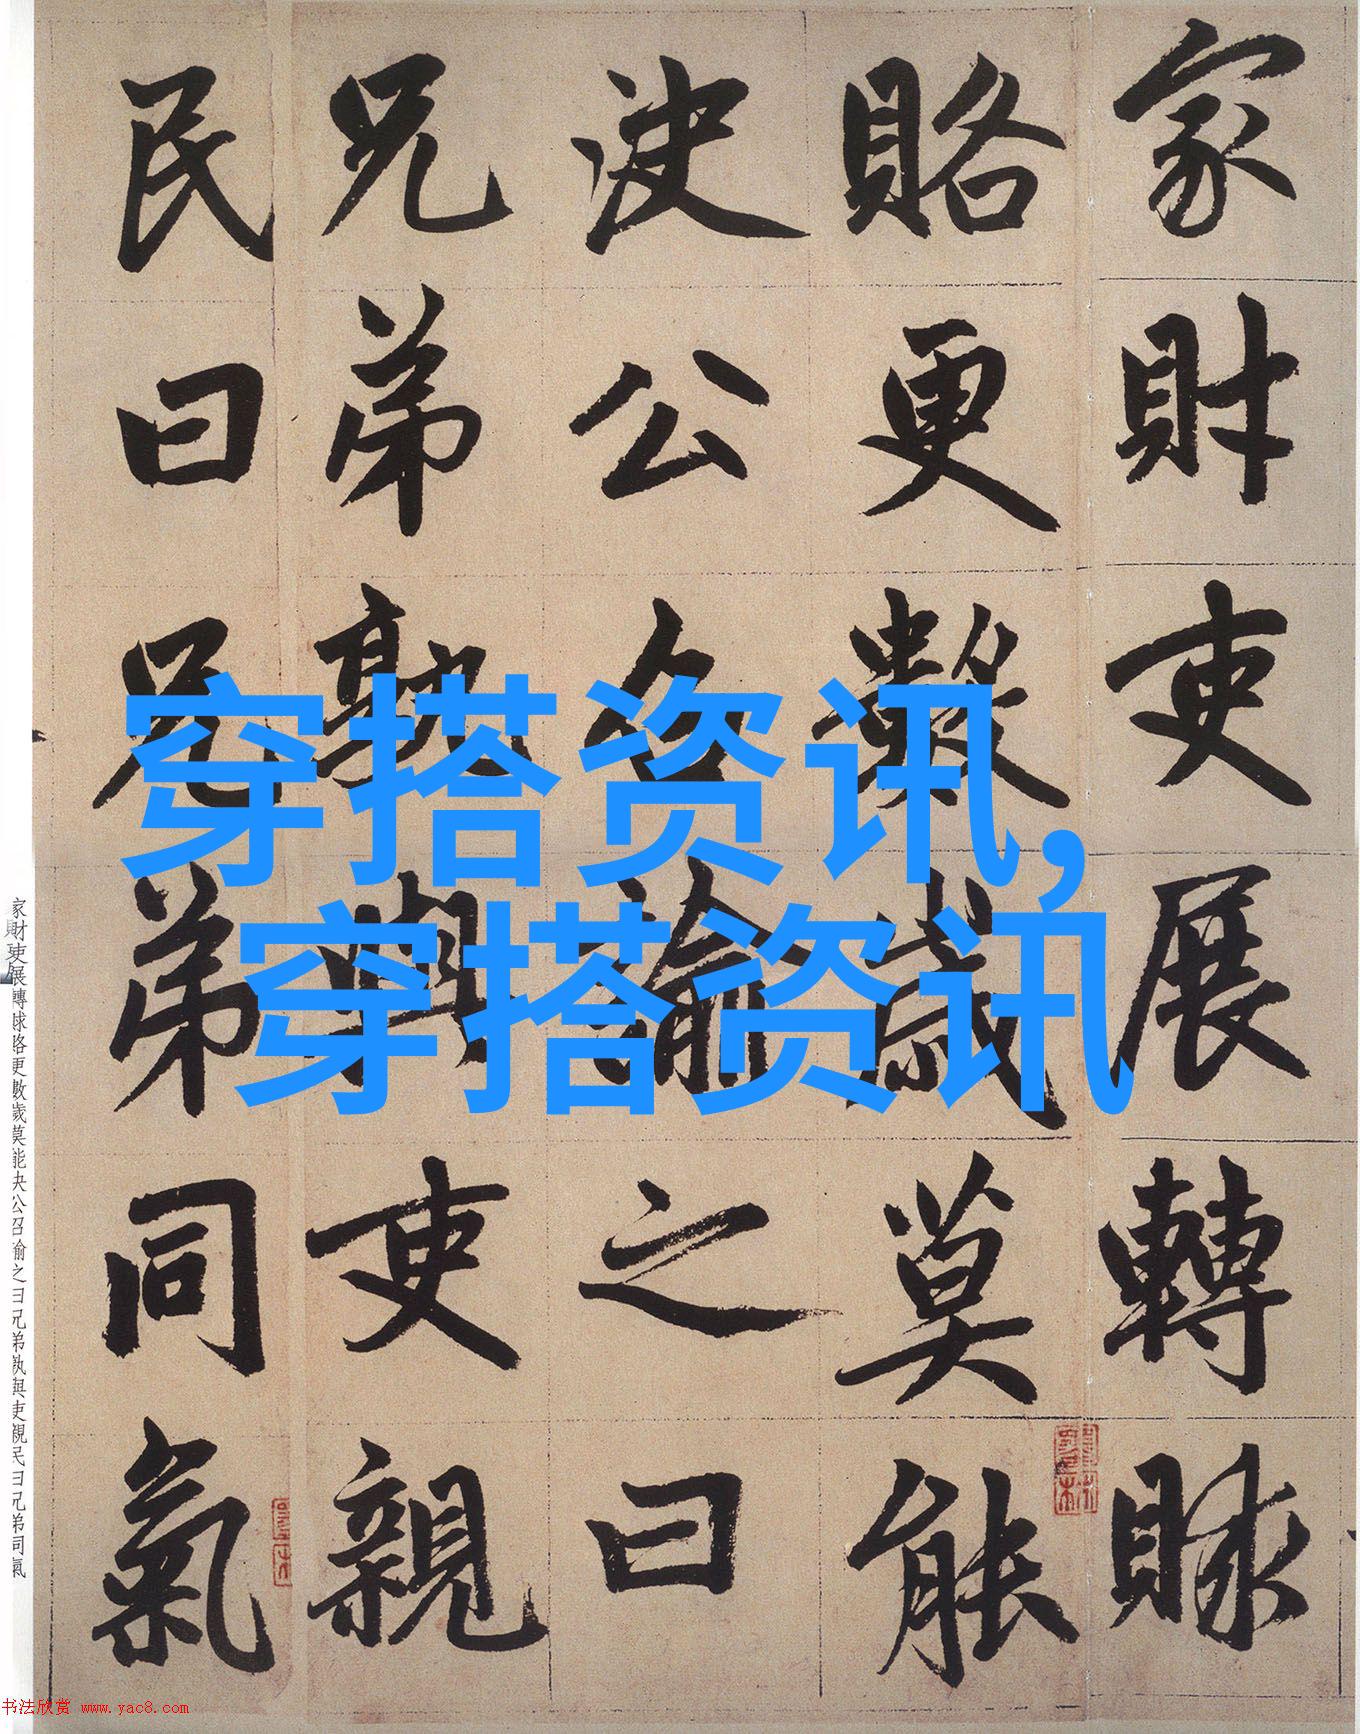 家財吏展轉賕
賂更數歲莫能
決公召諭之曰
兄弟孰與吏親
民曰兄弟同氣
穿搭资讯,
穿搭资讯
家財吏展轉賕賂更數歲莫能決公召諭之曰兄弟孰與吏親民曰兄弟同氣
书法欣赏 www.yac8.com